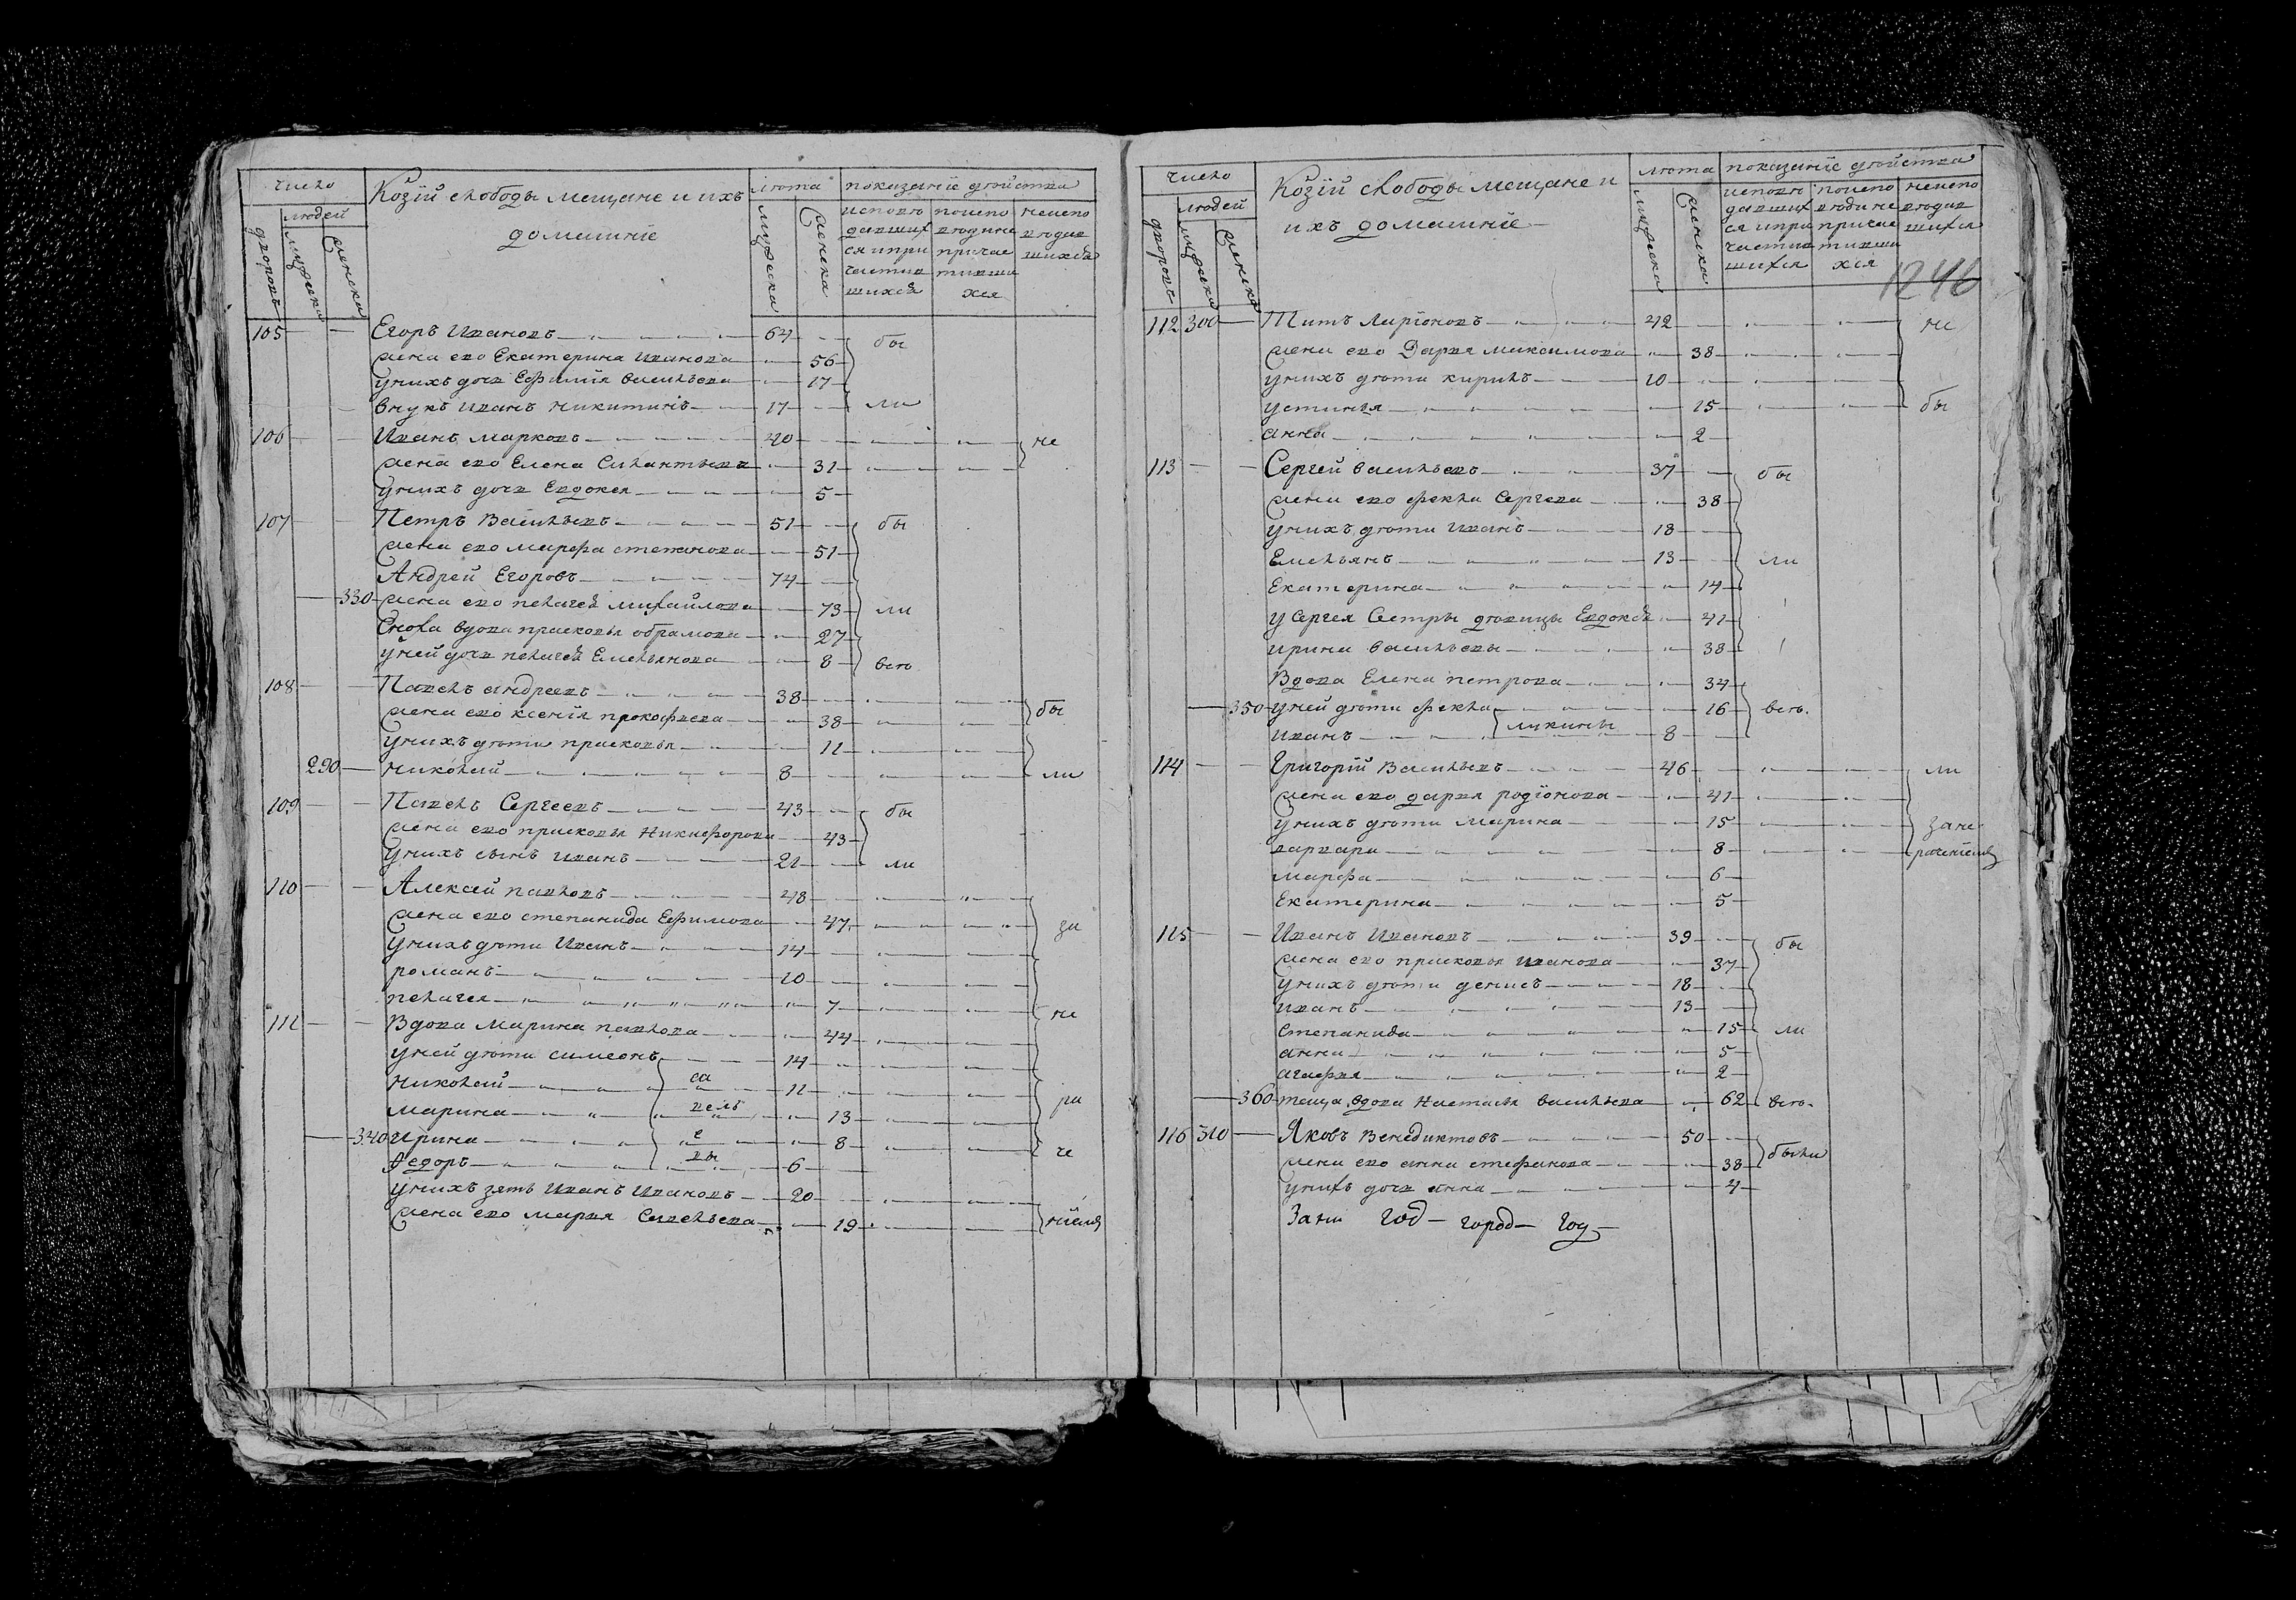 число
Козїй слободы мещане и ихъ
лѣта
показанїе дѣйства
людей
домашнїе
дворовъ
мужеска
женска
мужеска
женска
исповѣ
давших
ся и при
частив
шихся
поиспо
вѣдние
причас
тивши
хся
неиспо
вѣдав
шихся
105 — — Егоръ Ивановъ — 64 — бы
жена ево Екатерина Иванова — 56
у нихъ дочь Ефимїя Васильева — 17
внукъ Иванъ Никитинъ — 17 — ли
106 — — Иванъ Марковъ — 40 — не
жена ево Елена Силантьева — 31
у нихъ дочь Евдокея — 5
107 — — Петръ Васильевъ — 51 — бы
жена ево Марфа Степанова — 51
Андрей Егоровъ — 74
330 жена ево Пелагея Михайлова — 73 — ли
Сноха вдова Прасковья Обрамова — 27
у ней дочь Пелагея Емельянова — 8 — вето
108 — — Павелъ Андреевъ — 38
жена ево Ксенїя Прокофьева — 38 — бы
у нихъ дѣти Прасковья — 11
290 — Николай — 8 — ли
109 — — Павелъ Сергеевъ — 43 — бы
жена ево Прасковья Никифорова — 43
у нихъ сынъ Иванъ — 21 — ли
110 — — Алексей Павловъ — 48
жена ево Степанида Ефимова — 47 — за
у нихъ дѣти Иванъ — 14
Романъ — 10
Пелагея — 7 — не
111 — — Вдова Марина Павлова — 44
у ней дѣти Симеонъ — 14
Николай — са — 11 — ра
Марина — вель — 13
340 Ирина — е — 8 — че
Ѳедоръ — вы — 6
у нихъ зять Иванъ Ивановъ — 20
жена ево Марья Савельева — 19 — нїемъ
число
Козїй слободы мещане и
лѣта
показанїе дѣйства
людей
ихъ домашнїе
дворовъ
мужеска
женска
мужеска
женска
исповѣ
давших
ся и при
частив
шихся
поиспо
вѣди не
причас
тивши
хся
неиспо
вѣдав
шихся
1246
112 300 — Титъ Ларїоновъ — 42 — не
жена ево Дарья Максимова — 38
у нихъ дѣти Кирилъ — 10
Устинья — 15 — бы
Анна — 2
113 — — Сергей Васильевъ — 37 — бы
жена ево Фекла Сергева — 38
у нихъ дѣти Иванъ — 18
Емельянъ — 13 — ли
Екатерина — 14
у Сергея Сестры девицы Евдокея — 41
Ирина Васильевы — 38
Вдова Елена Петрова — 34
350 у ней дѣти Фекла — 16 — вето.
Иванъ — Лукины — 8
114 — — Григорїй Васильевъ — 46 — ли
жена ево Дарья Родїонова — 41
у нихъ дѣти Марина — 15 — зане
Варвара — 8 — раченїемъ
Марфа — 6
Екатерина — 5
115 — — Иванъ Ивановъ — 39 — бы
жена ево Прасковья Иванова — 37
у нихъ дѣти Денисъ — 18
Иванъ — 13
Степанида — 15 — ли
Анна — 5
Агафья — 2
360 теща вдова Настасья Васильева — 62 — вето.
116 310 — Яковъ Венедиктовъ — 50
жена ево Анна Стефанова — 38 — были
у нихъ дочь Анна — 4
Зани год — город — год —